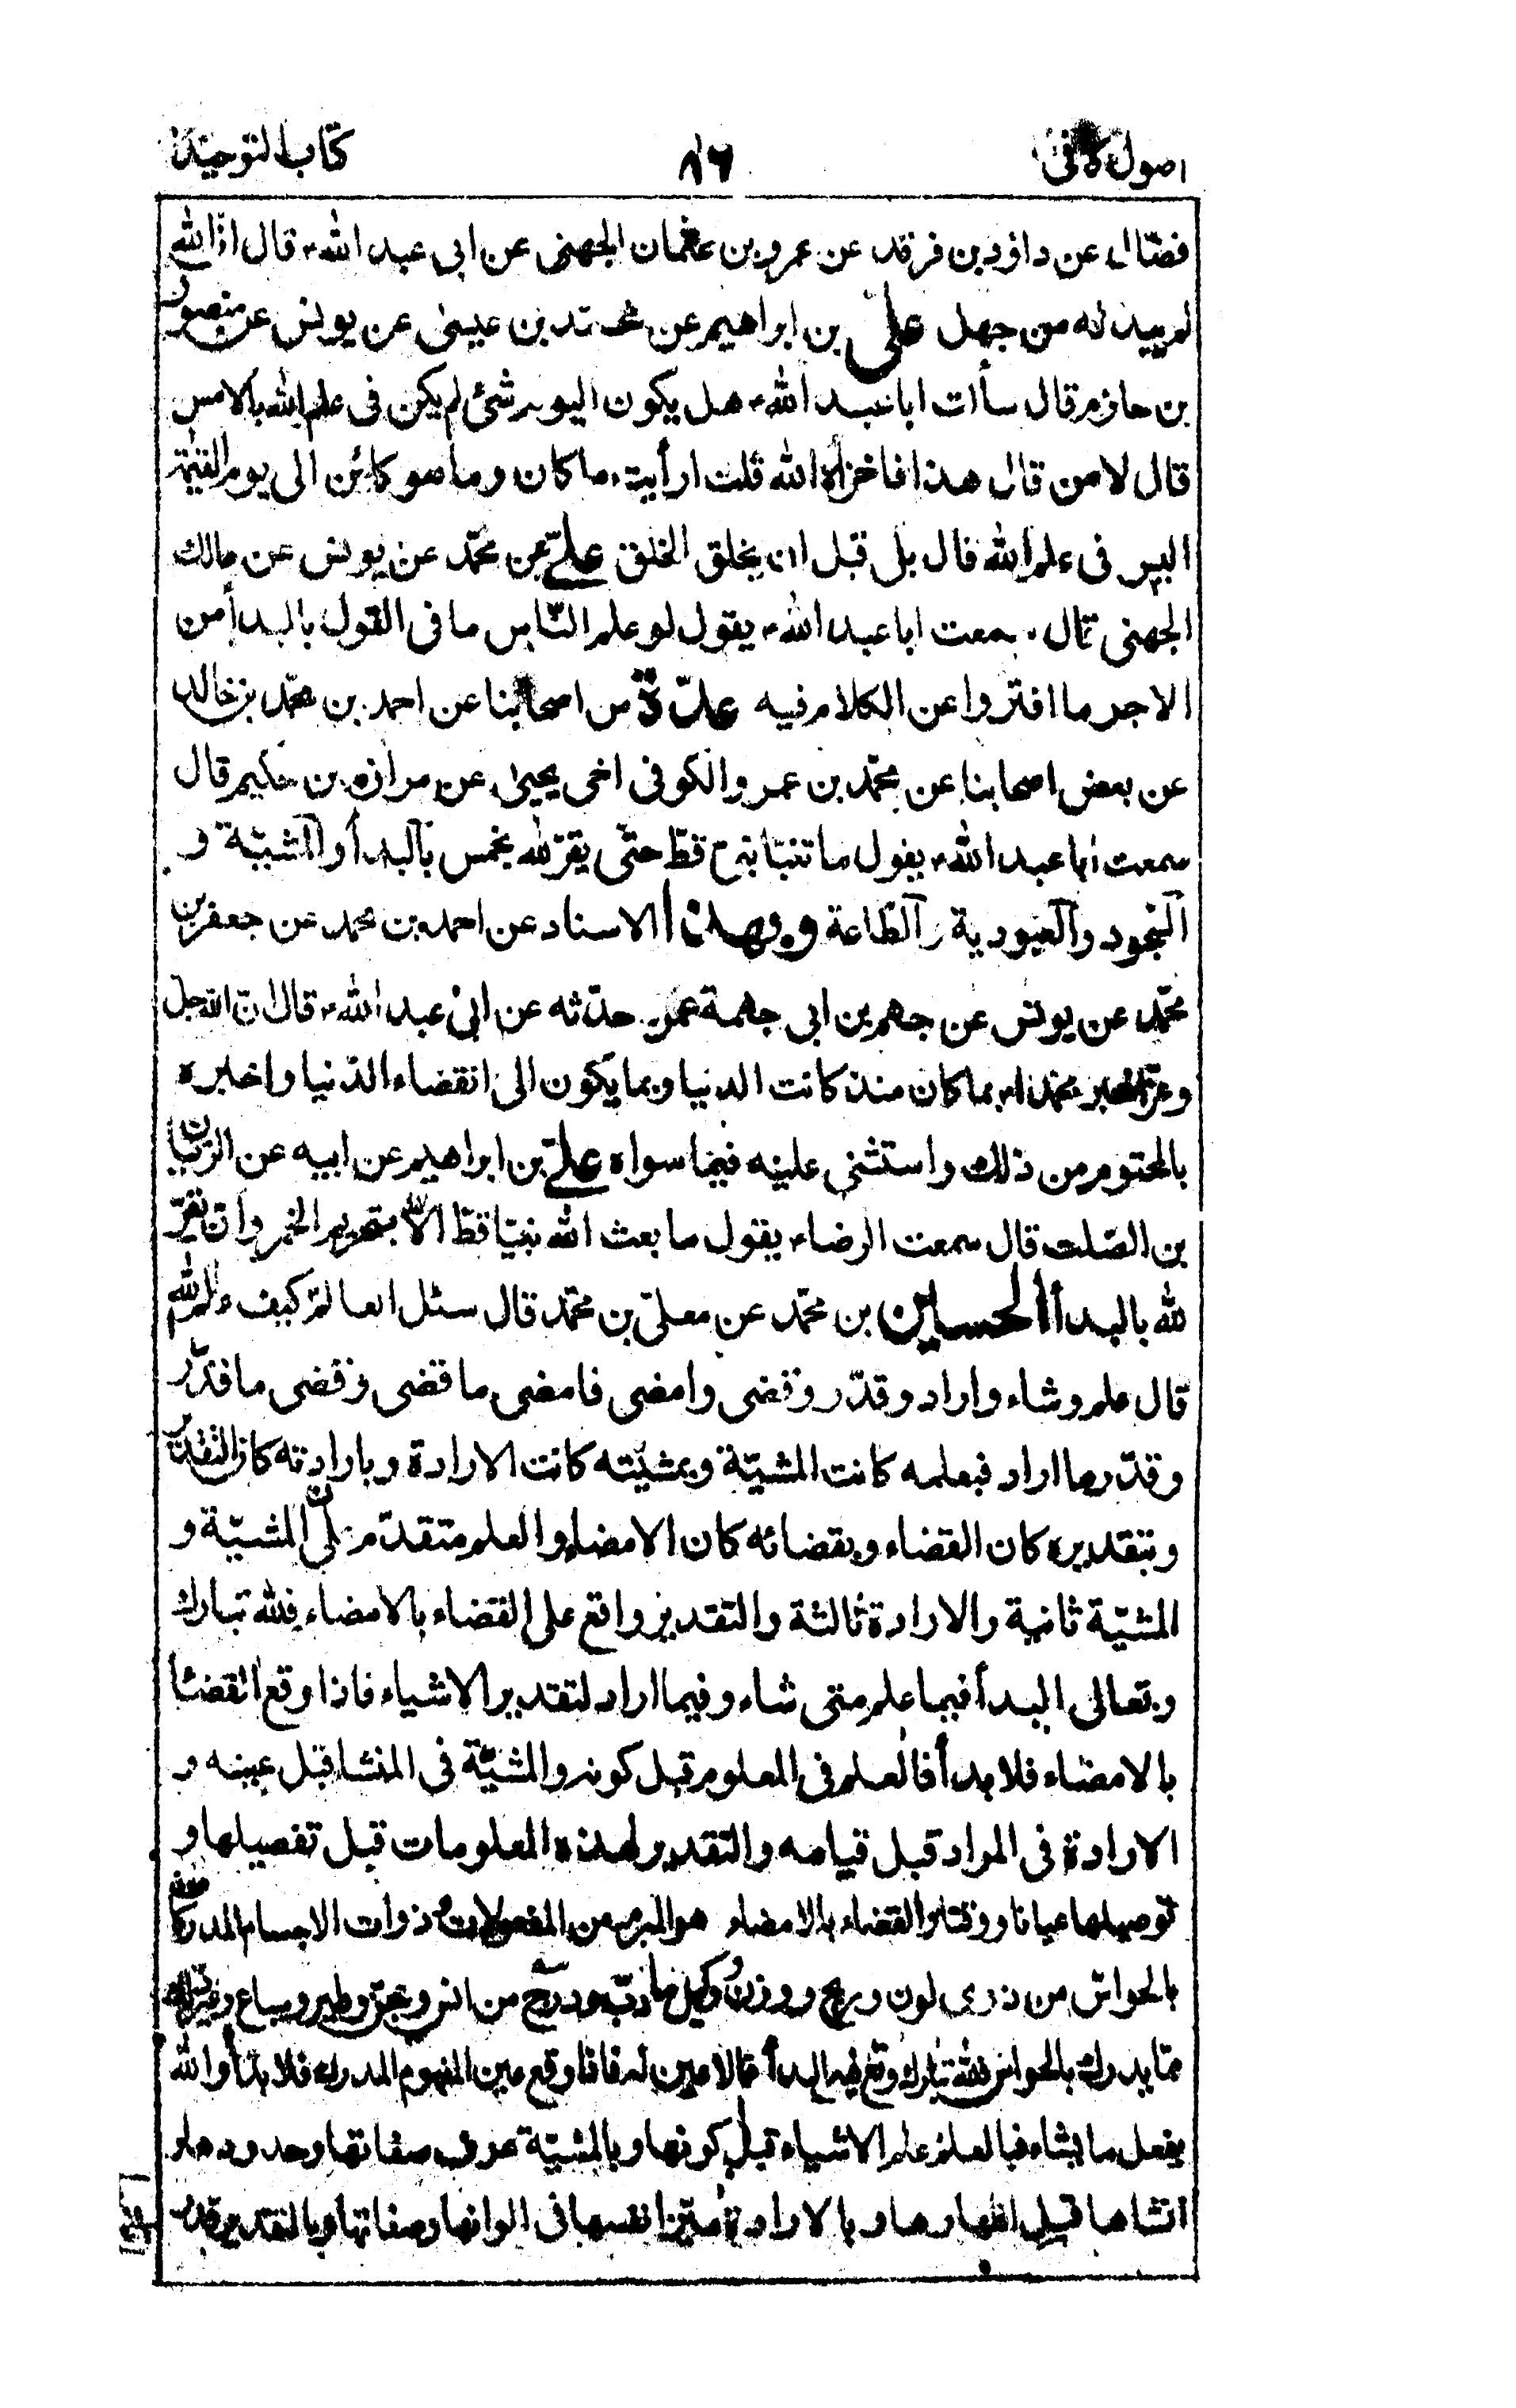 اصول كافى
٨٦
كتاب التوحيد
فضّال عن داؤد بن فرقد عن عمرو بن عثمان الجهنى عن ابى عبد الله ء قال ان الله
لم يبد له من جهل على بن ابراهيم عن محمّد بن عيسىٰ عن يونس عن منصور
بن حازم قال سألت ابا عبد الله ء هل يكون اليوم شئ لم يكن فى علم الله بالامس
قال لا من قال هذا فاخزاه الله قلت ارأيت ما كان وما هو كائن الى يوم القيٰمة
اليس فى علم الله قال بلى قبل ان يخلق الخلق علىّ عن محمّد عن يونس عن مالك
الجهنى قال سمعت ابا عبد الله ء يقول لو علم النّاس ما فى القول بالبدأ من
الاجر ما افتروا عن الكلام فيه عدّة من اصحابنا عن احمد بن محمّد بن خالد
عن بعض اصحابنا عن محمّد بن عمرو الكوفى اخى يحيىٰ عن مرازم بن حكيم قال
سمعت ابا عبد الله ء يقول ما تنبّا نبى قطّ حتّى يقرّ لله بخمس بالبدأ والمشيّة و
السّجود والعبودية والطّاعة وبهذا الاسناد عن احمد بن محمد عن جعفر بن
محمّد عن يونس عن جهم بن ابى جهمة عمن حدّثه عن ابى عبد الله ء قال انّ الله جل
وعزّ اخبر محمّدا ء بما كان منذ كانت الدنيا وبما يكون الى انقضاء الدّنيا واخبره
بالمحتوم من ذلك واستثنى عليه فيما سواه علىّ بن ابراهيم عن ابيه عن الريّان
بن الصّلت قال سمعت الرضا ء يقول ما بعث الله نبيّا قطّ الّا بتحريم الخمر وان يقرّ
لله بالبدأ الحسين بن محمّد عن معلّى بن محمّد قال سئل العالم كيف علم الله
قال علم وشاء واراد وقدّر وقضى وامضى فامضى ما قضى وقضى ما قدّر
وقدّر ما اراد فبعلمه كانت المشيّة وبمشيّته كانت الارادة وبارادته كان التقدير
وبتقديره كان القضاء وبقضائه كان الامضاء والعلم متقدّم على المشيّة و
المشيّة ثانية والارادة ثالثة والتقدير واقع على القضاء بالامضاء فلله تبارك
وتعالى البدأ فيما علم متى شاء وفيما اراد لتقدير الاشياء فاذا وقع القضاء
بالامضاء فلا بدأ فالعلم فى المعلوم قبل كونه والمشيّة فى المنشا قبل عينه و
الارادة فى المراد قبل قيامه والتقدير لهذه المعلومات قبل تفصيلها و
توصيلها عيانا ووقتا والقضاء بالامضاء هو المبرم من المفعولات ذوات الاجسام المدركات
بالحواسّ من ذوى لون وريح ووزن وكيل وما دبّ ودرج من انس وجنّ وطير وسباع وغير ذلك
ممّا يدرك بالحواس فلله تبارك وتعالى فيه البدأ ممّا لا عين له فاذا وقع العين المفهوم المدرك فلا بدأ والله
يفعل ما يشاء فبالعلم علم الاشياء قبل كونها وبالمشيّة عرف صفاتها وحدودها و
انشاها قبل اظهارها وبالارادة ميّز انفسها فى الوانها وصفاتها وبالتقدير قدّر